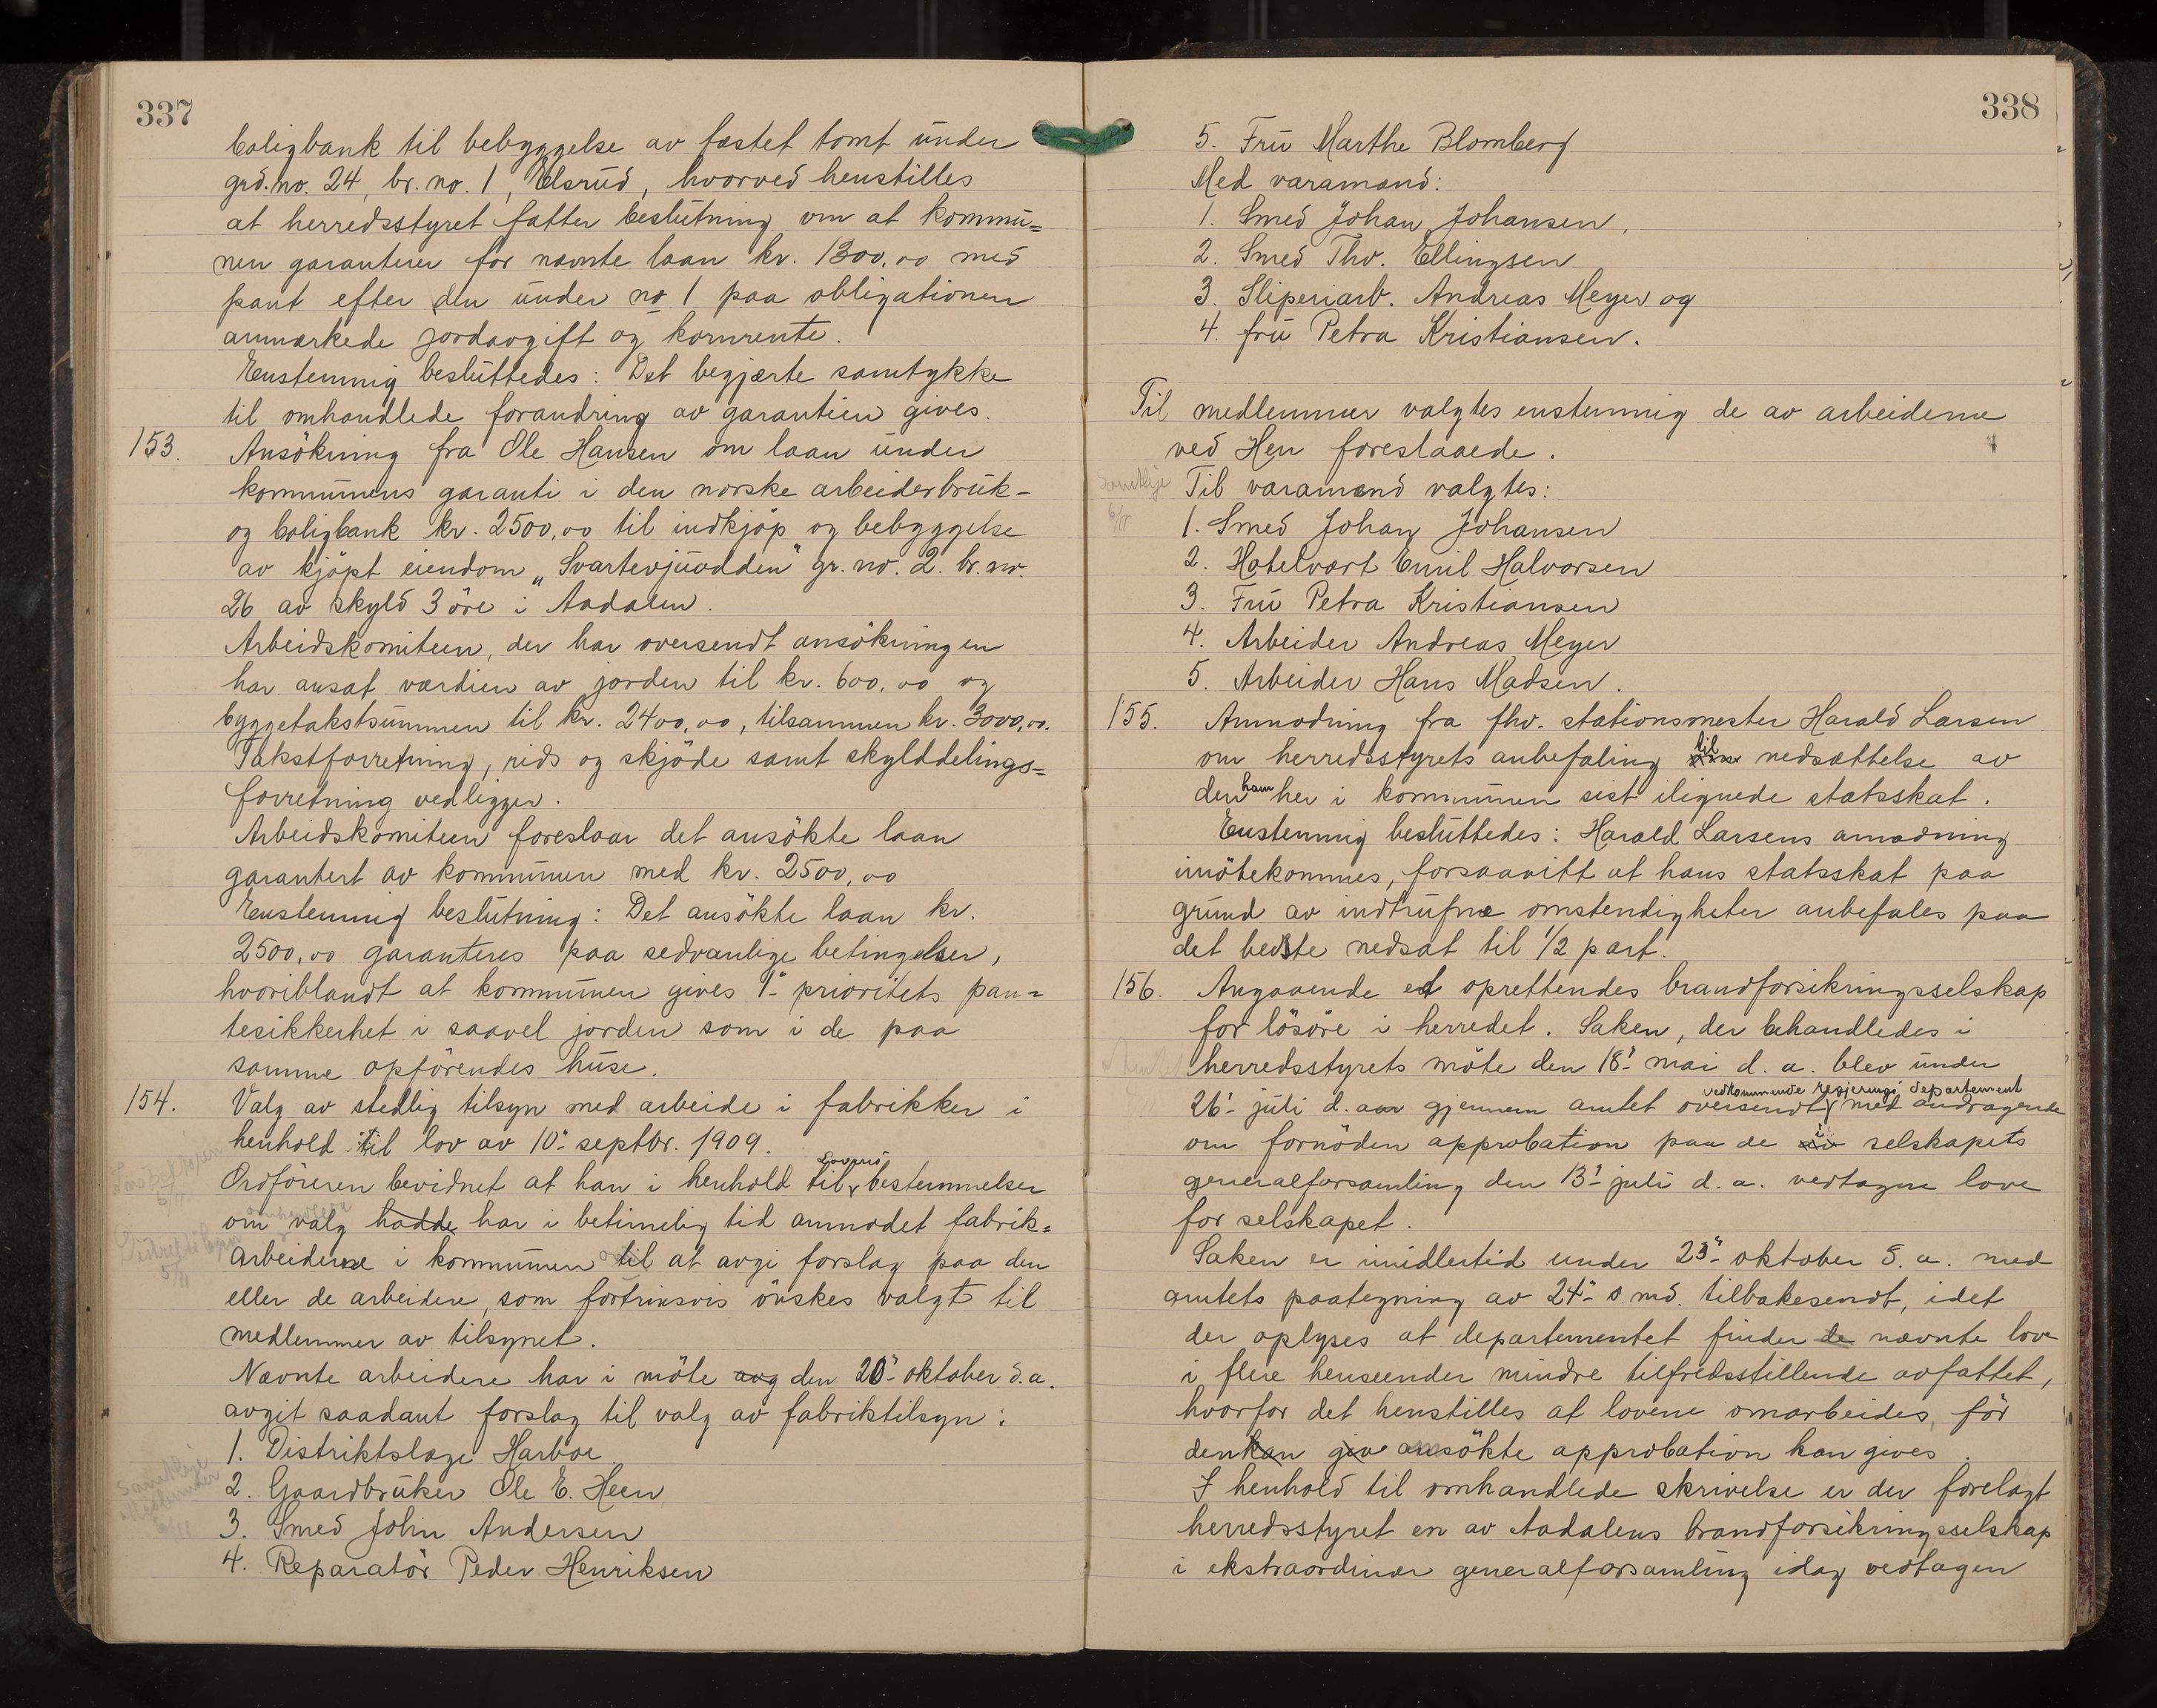 337
boligbank til bebyggelse av fæstet tomt under
grd. no. 24, br. no. 1, Elsrud, hvorved henstilles
at herredsstyret fatter beslutning om at kommu=
nen garanterer for nævnte laan kr. 1300,00 med
pant efter den under no 1 paa obligationen
anmerkede jordavgift og kornrente.
Enstemmig besluttedes: Det begjærte samtykke
til omhandlede forandring av garantien gives.
153. Ansökning fra Ole Hansen om laan under
kommunens garanti i den norske arbeiderbruk-
og boligbank kr. 2500,00 til indkjöp og bebyggelse
av kjöpt eiendom „Svartevjuodden" gr. no. 2. br. no.
26 av skyld 3 öre i Aadalen.
Arbeidskomiteen, der har oversendt ansökningen
har ansat værdien av jorden til kr. 600,00 og
byggetakstsummen til kr. 2400,00, tilsammen kr. 3000,00.
Takstforretning, rids og skjöde samt skylddelings=
forretning vedligger.
Arbeidskomiteen foreslaar det ansökte laan
garantert av kommunen med kr. 2500,00
Enstemmig beslutning: Det ansökte laan kr.
2500,00 garanteres paa sedvanlige betingelser,
hvoriblandt at kommunen gives 1ste prioritets pan=
tesikkerhet i saavel jorden som i de paa
samme opförendes huse.
154. Valg av stedlig tilsyn med arbeide i fabrikker i
henhold til lov av 10- septbr. 1909.
Ordföreren bevidnet at han i henhold til lovens bestemmelser
om valg hadde har i betimelig tid anmodet fabrik=
arbeiderne i kommunen til at avgi forslag paa den
eller de arbeidere, som fortrinsvis önskes valgt til
medlemmer av tilsynet.
Nævnte arbeidere har i möte avg den 20- oktober d. a.
avgit saadant forslag til valg av fabriktilsyn:
1. Distriktslæge Harboe.
2. Gaardbruker Ole E. Heen
3. Smed John Andersen
4. Reparatör Peder Henriksen
338
5. Fru Marthe Blomberg
Med varamænd:
1. Smed Johan Johansen,
2. Smed Thv. Ellingsen
3. Sliperiarb. Andreas Meyer og
4. fru Petra Kristiansen.
Til medlemmer valgtes enstemmig de av arbeiderne
ved Hen foreslaaede.
Til varamænd valgtes:
1. Smed Johan Johansen
2. Hotelvært Emil Halvorsen
3. Fru Petra Kristiansen
4. Arbeider Andreas Meyer
5. Arbeider Hans Madsen.
155. Anmodning fra fhv. stationsmester Harald Larsen
om herredsstyrets anbefaling til nedsættelse av
den ham her i kommunen sist ilignede statsskat.
Enstemmig besluttedes: Harald Larsens amodning
imötekommes, forsaavitt at hans statsskat paa
grund av indtrufne omstendigheter anbefales paa
det bedste nedsat til 1/2 part.
156. Angaaende et oprettendes brandforsikringsselskap
for lösöre i herredet. Saken, der behandledes i
herredsstyrets möte den 18- mai d. a. blev under
26- juli d. aar gjennem amtet oversendt vedkommende regjerings departement med andragende
om fornöden approbation paa de i selskapets
generalforsamling den 13- juli d. a. vedtagne love
for selskapet.
Saken er imidlertid under 23- oktober d. a. med
amtets paategning av 24- s. md. tilbakesendt, idet
der oplyses at departementet finder de nævnte love
i flere henseender mindre tilfredsstillende avfattet,
hvorfor det henstilles at lovene omarbeides, för
den kan give ansökte approbation kan gives.
I henhold til omhandlede skrivelse er der forelagt
herredsstyret en av Aadalens brandforsikringsselskap
i ekstraordinær generalforsamling idag vedtagen